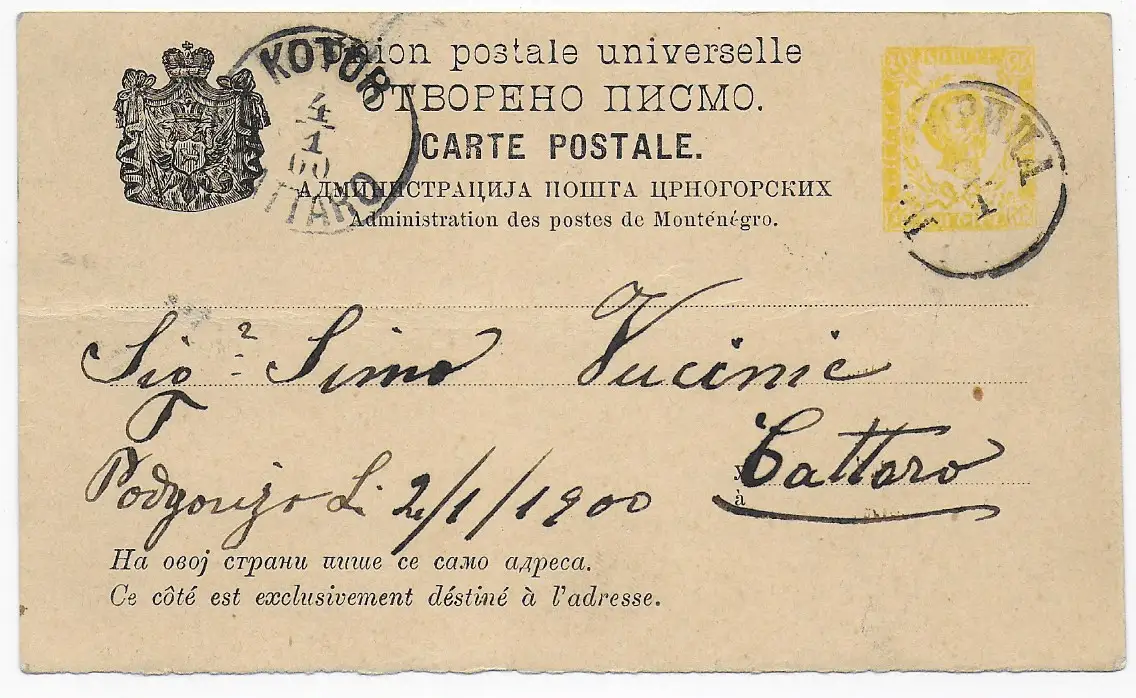 Union postale universelle
ОТВОРЕНО ПИСМО.
CARTE POSTALE.
АДМИНИСТРАЦИЈА ПОШТА ЦРНОГОРСКИХ
Administration des postes de Monténégro.
KOTOR
4
1
00
TTARO
РИЦА
Sigr Simo Vucinic
у
à
Cattaro
2/1/1900
На овој страни пише се само адреса.
Ce côté est exclusivement déstiné à l'adresse.